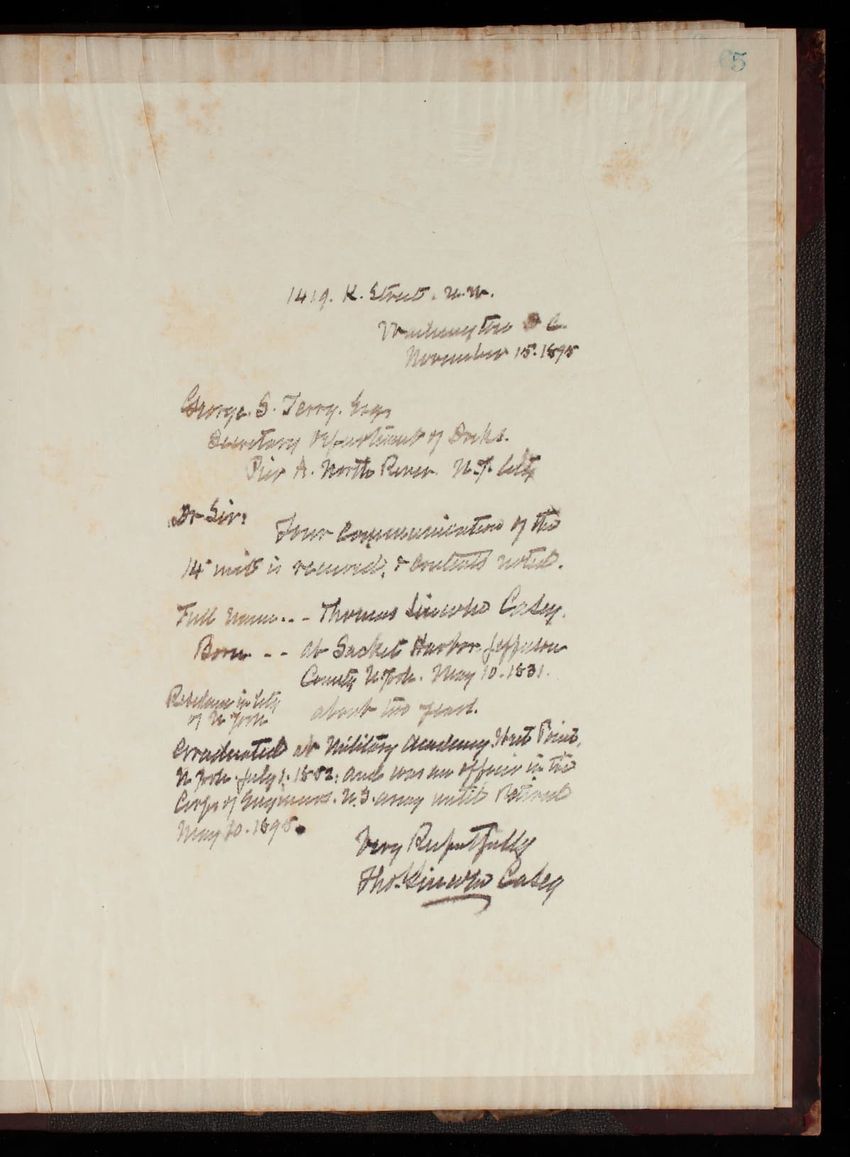 65
1419. K. Street. N.W.
Washington D C.
November 15. 1895
George. S. Terry. Esq,
Secretary Department of Docks.
Pier A. North River N.Y. City
Dr Sir:
Your Communication of the
14 inst is received, & contents noted.
Full name. - - Thomas Lincoln Casey.
Born - - At Sacket Harbor Jefferson
County N York. May 10. 1831.
Residence in City
of N York about two years.
Graduated at Military Academy West Point,
N York July 1. 1852; and was an officer in the
Corps of Engineers. U.S. army until Retired
May 10. 1895.
Very Respectfully
Tho. Lincoln Casey